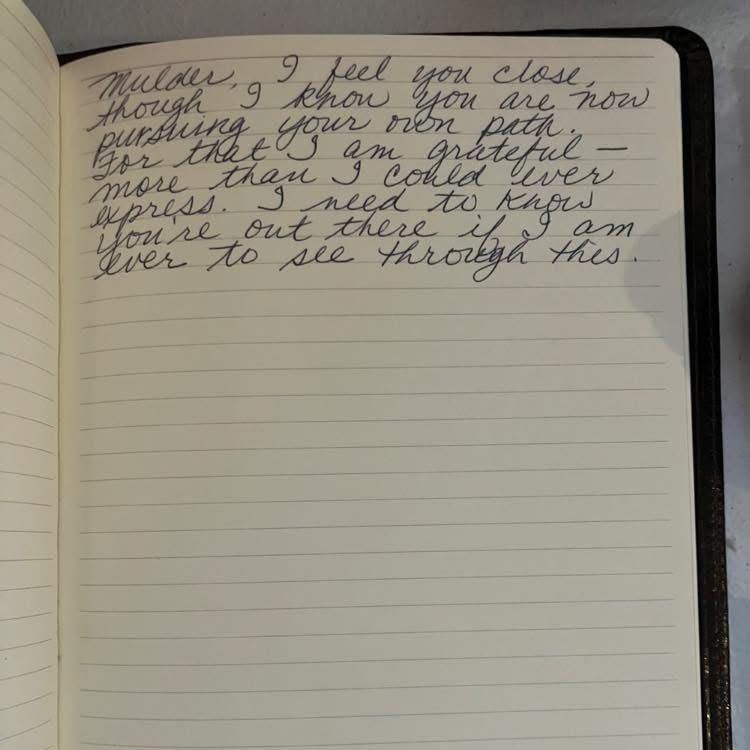 Mulder, I feel you close,
though I know you are now
pursuing your own path.
For that I am grateful —
more than I could ever
express. I need to know
you're out there if I am
ever to see through this.